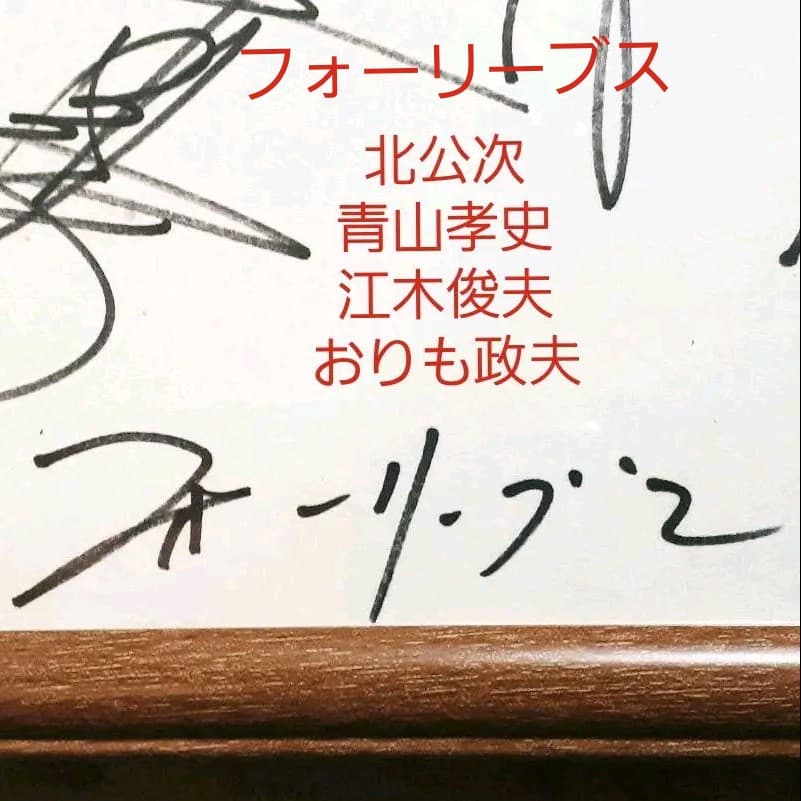 フォーリーブス
北公次
青山孝史
江木俊夫
おりも政夫
フォーリーブス